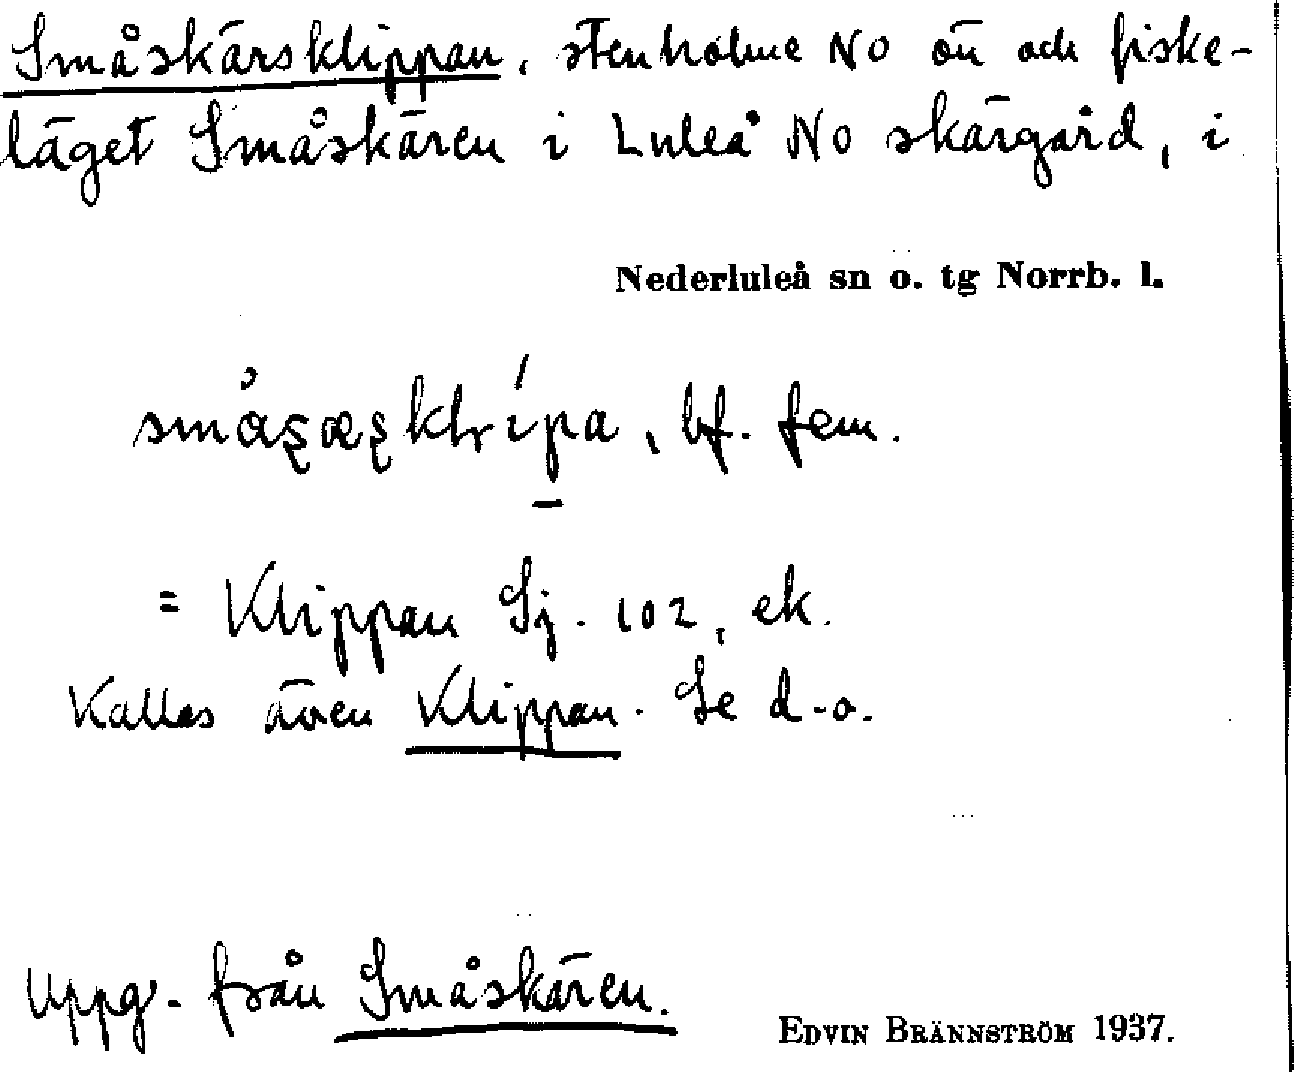 Småskärsklippan, stenholme NO ön och fiske-
läget Småskären i Luleå NO skärgård, i
Nederluleå sn o. tg Norrb. l.
bf. fem.
= Klippan Sj. 102, ek.
Kallas även Klippan. Se d.o.
Uppg. från Småskären.
EDVIN BRÄNNSTRÖM 1937.